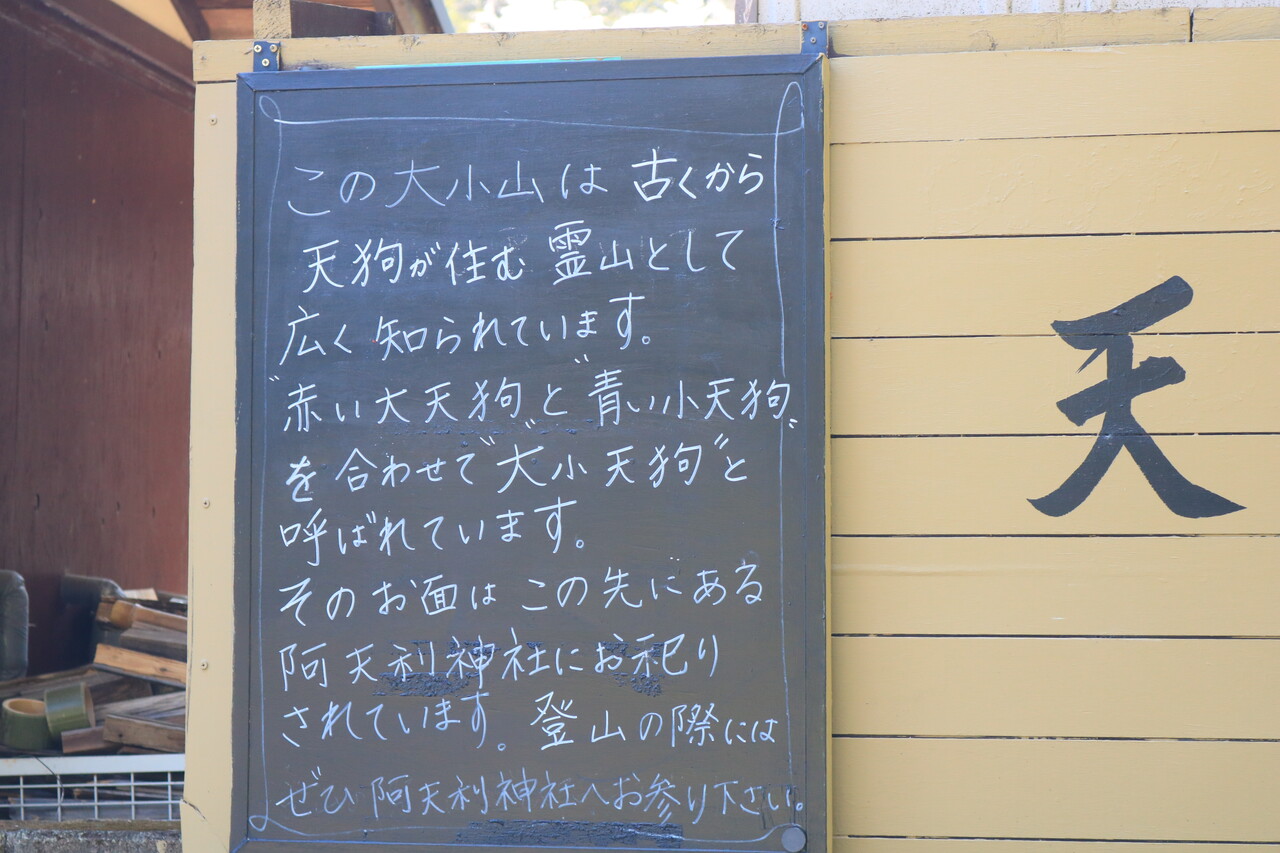 この大小山は古くから
天狗が住む霊山として
広く知られています。
"赤い大天狗"と"青い小天狗"
を合わせて"大小天狗"と
呼ばれています。
そのお面はこの先にある
阿夫利神社にお祀り
されています。登山の際には
ぜひ阿夫利神社へお参り下さい。
天